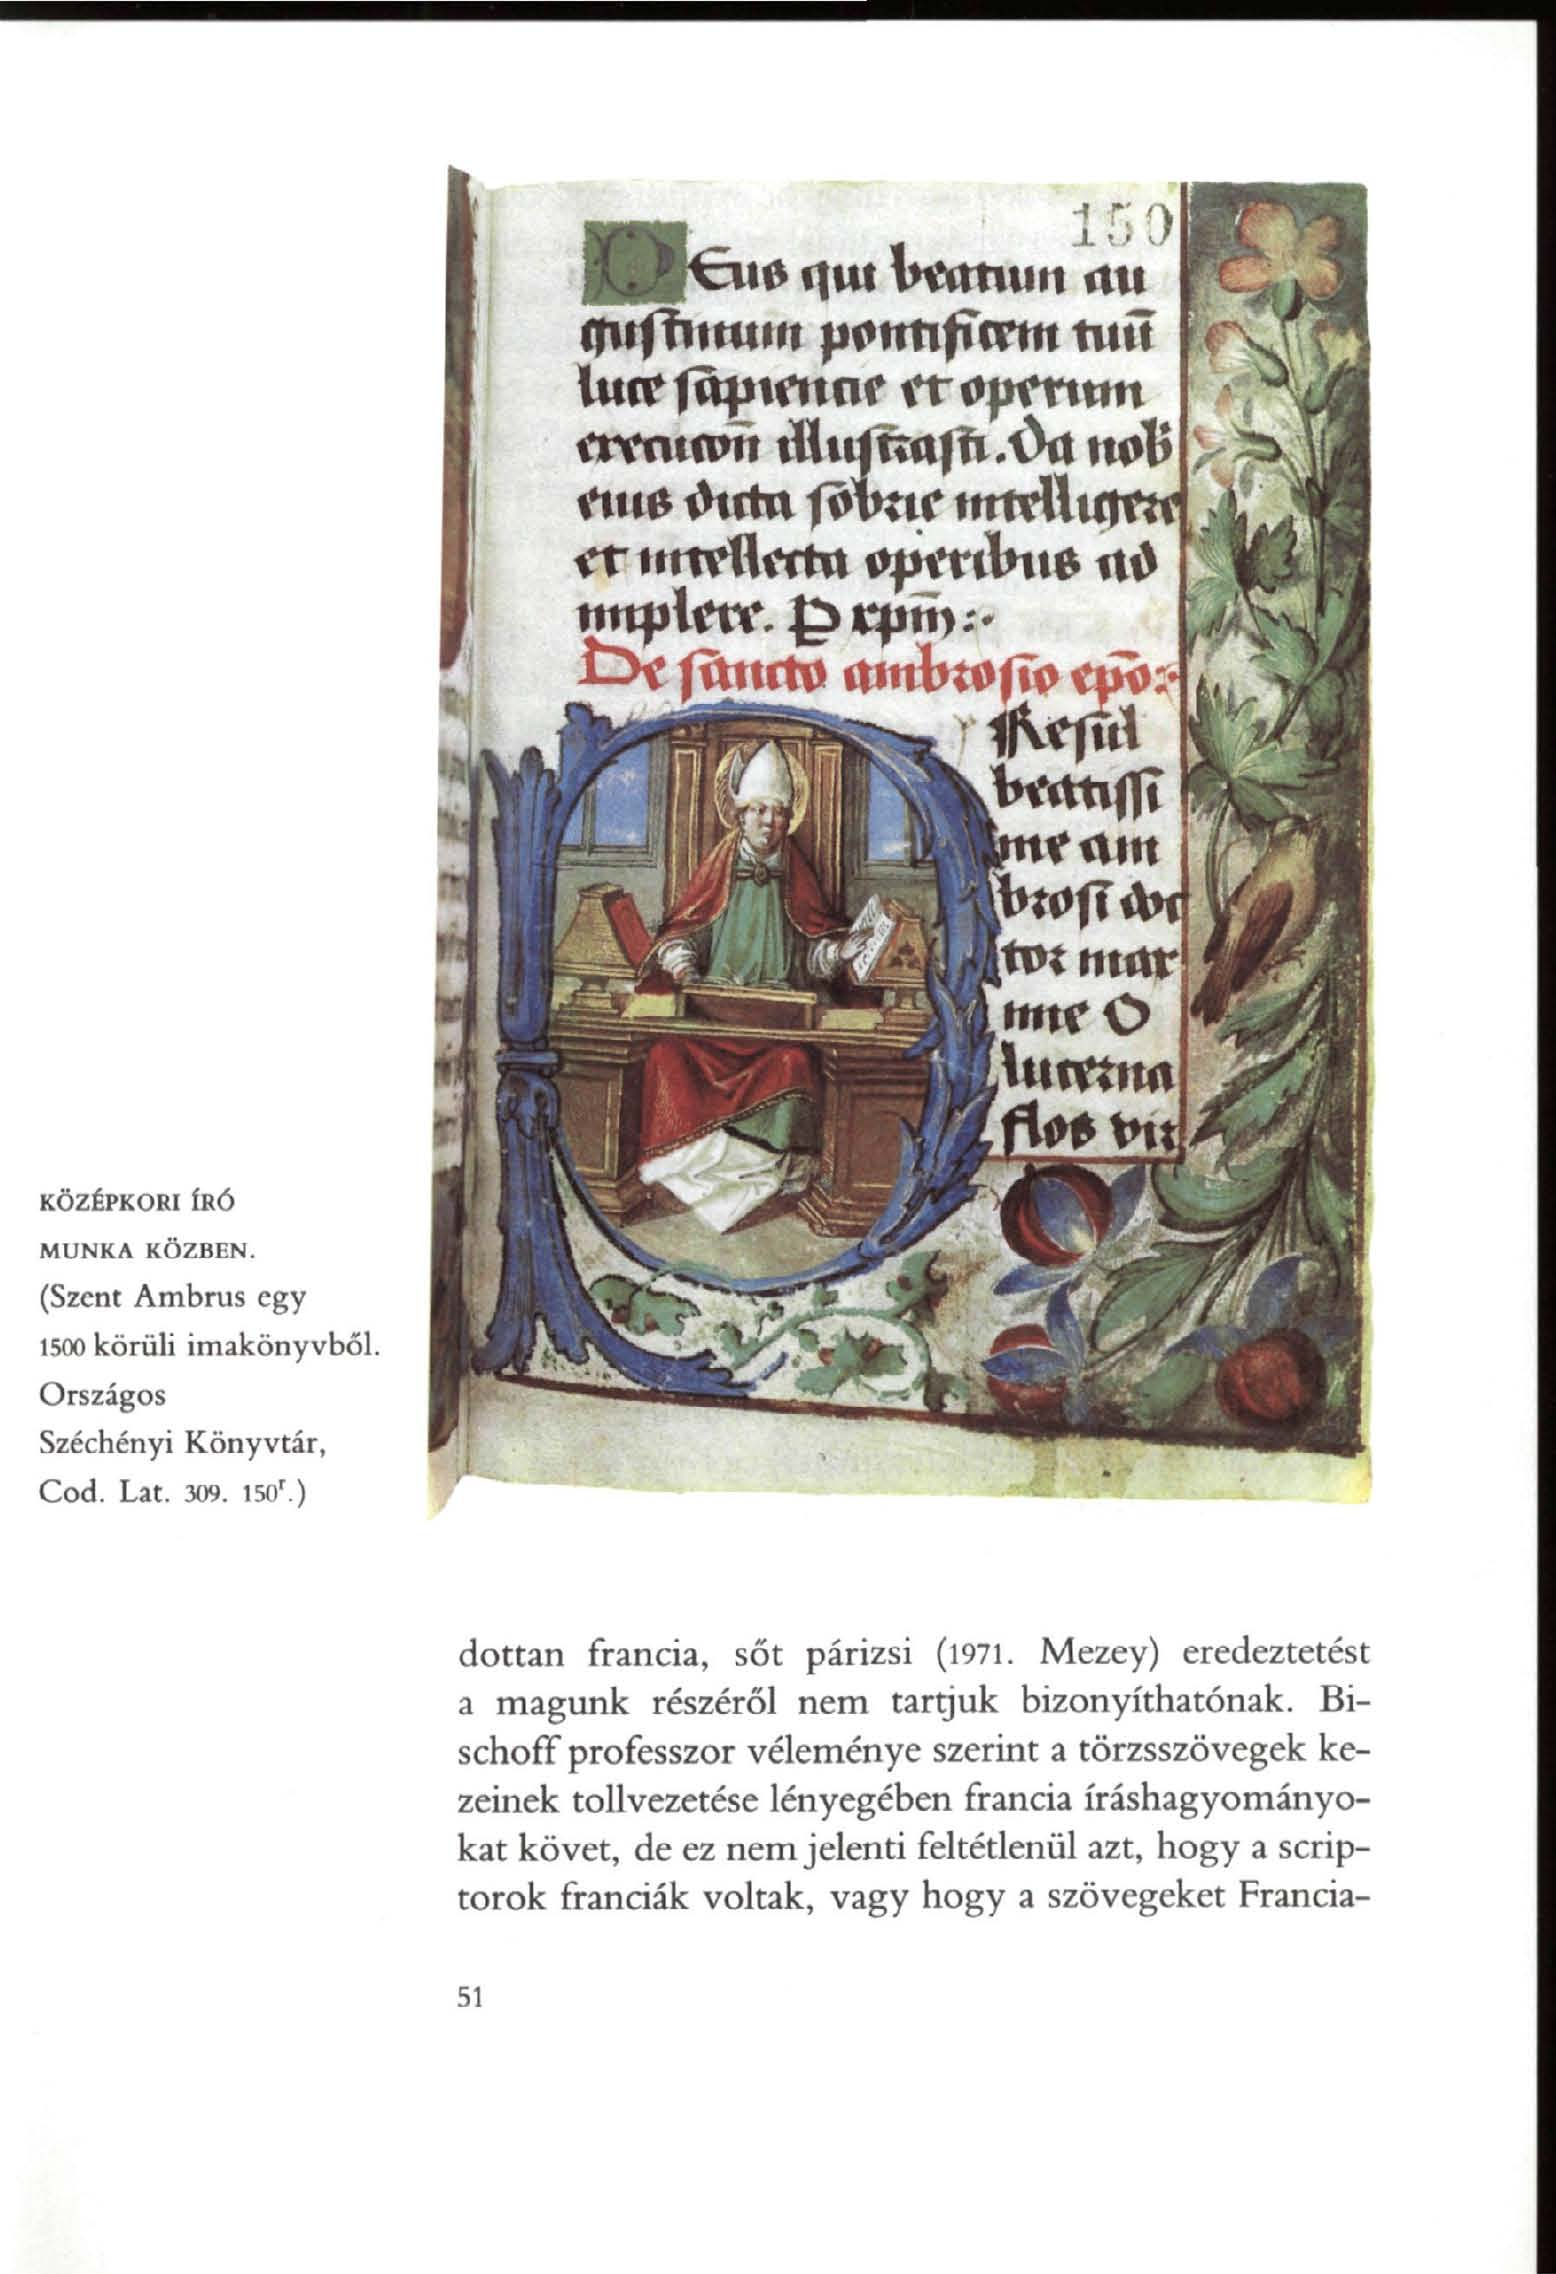 150
Eus qui beatum au
gustinum pontificem tuū
luce sapiencie et operum
execucōn illustrasti. Da nob
eius dicta sobrie intelligere
et intellecta operibus ad
implere. P xpm̄
De sancto ambrosio epō
Resul
beatissi
me am
brosi doc
tor mar
ime O
lucerna
flos vir
KÖZÉPKORI ÍRÓ
MUNKA KÖZBEN.
(Szent Ambrus egy
1500 körüli imakönyvből.
Országos
Széchényi Könyvtár,
Cod. Lat. 309. 150r.)
dottan francia, sőt párizsi (1971. Mezey) eredeztetést
a magunk részéről nem tartjuk bizonyíthatónak. Bi-
schoff professzor véleménye szerint a törzsszövegek ke-
zeinek tollvezetése lényegében francia íráshagyományo-
kat követ, de ez nem jelenti feltétlenül azt, hogy a scrip-
torok franciák voltak, vagy hogy a szövegeket Francia-
51